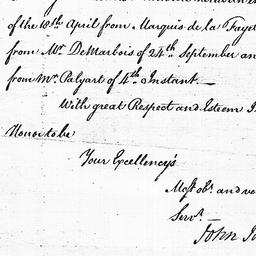 of the 18th April from Marquis de la Fayet
from Mr. DeMarbois of 24th September an
from Mr. Palyart of 4th Instant. —
With great Respect and Esteem I
Honor to be
Your Excellency's
Most obt. and ve
Servt. —
John